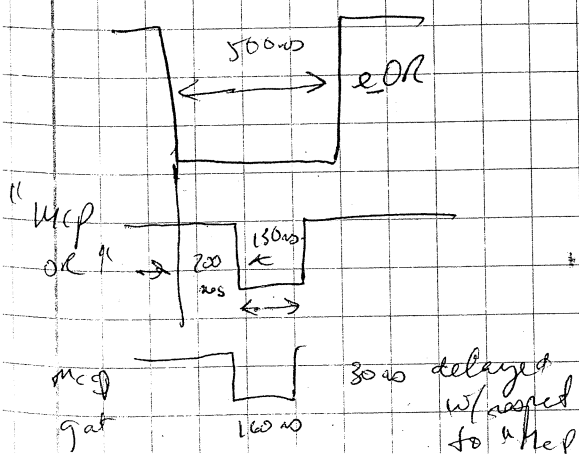 500ns
eOR
"MCP
OR"
200
ns
150ns
MCP
gat
160ns
30ns delayed
w/ respect
to "MCP